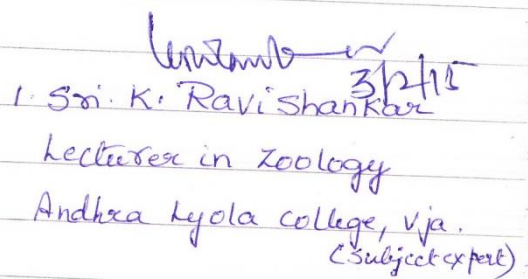 3/2/15
1. Sri. K. Ravi Shankar
Lecturer in Zoology
Andhra Lyola college, Vja.
(Subject expert)